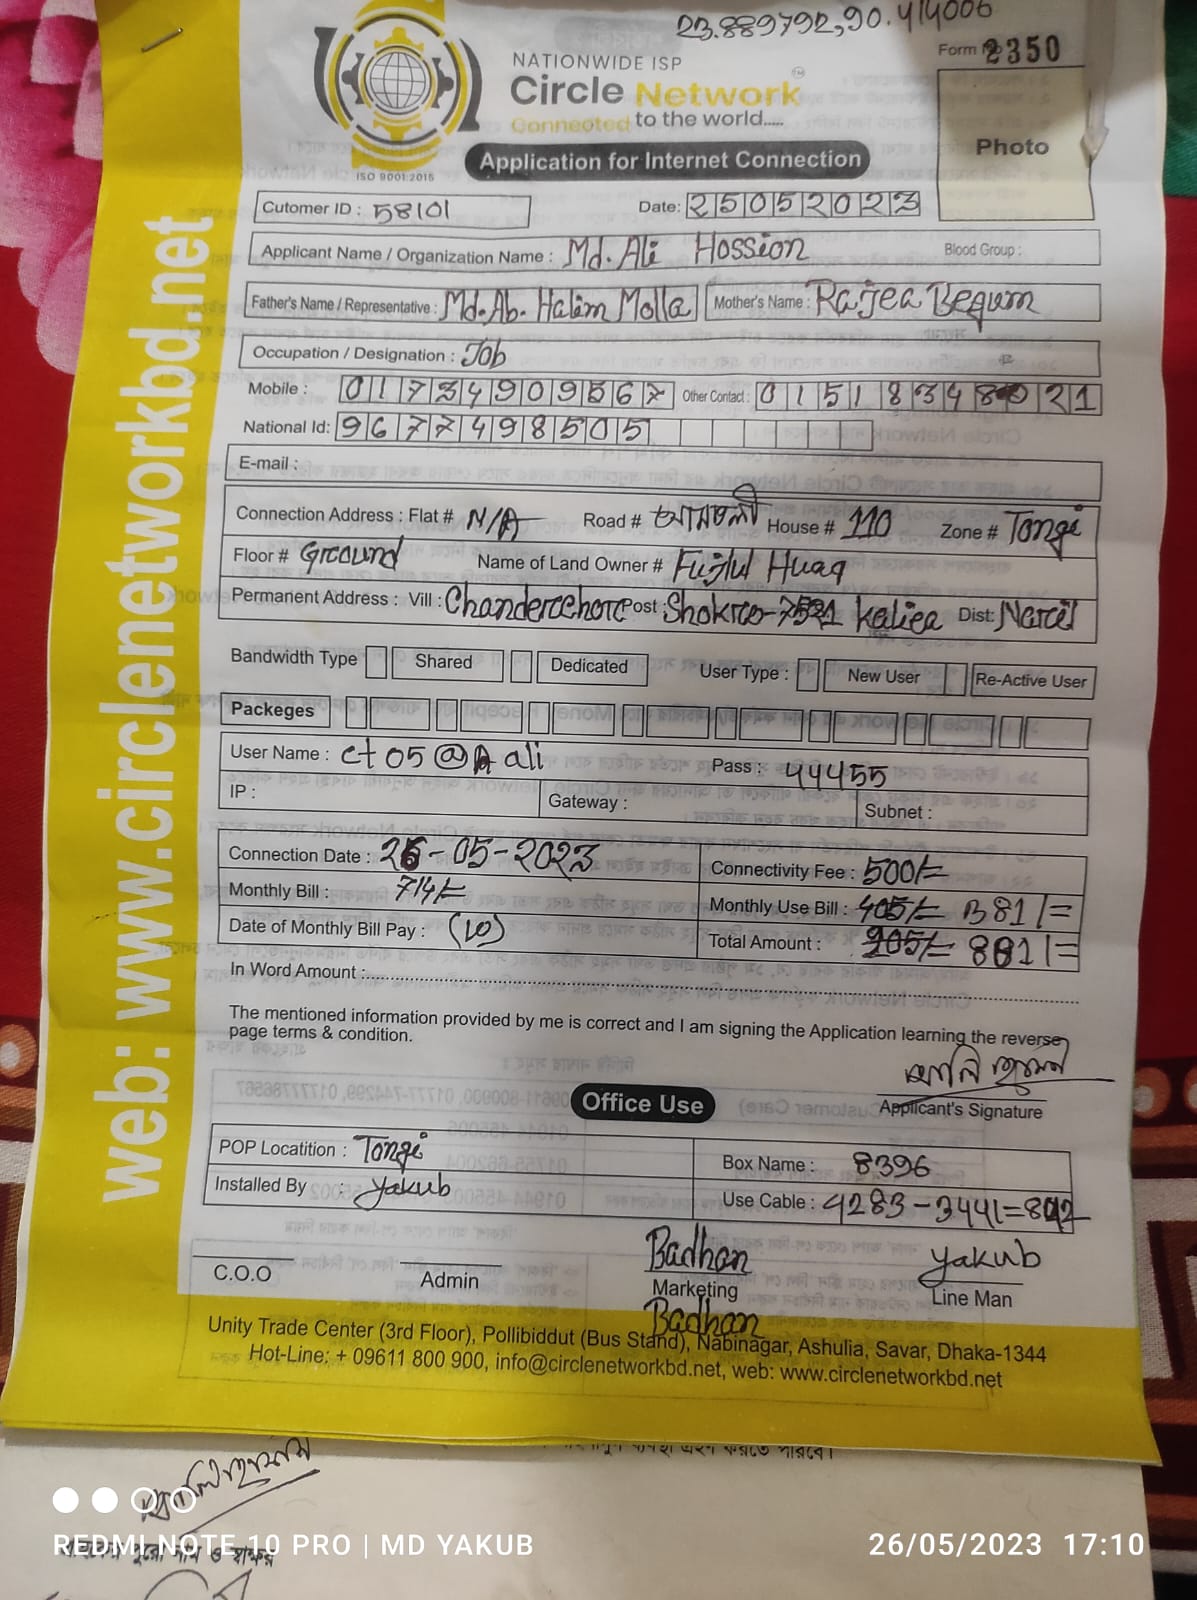 23.889792,90.414006
Form No 2350
NATIONWIDE ISP
Circle Network
Connected to the world.....
ISO 9001:2015
Application for Internet Connection
Photo
Cutomer ID : 58101
Date: 25052023
Applicant Name / Organization Name : Md. Ali Hossion
Blood Group :
Father's Name / Representative : Md. Ab. Halim Molla
Mother's Name : Rajea Begum
Occupation / Designation : Job
Mobile : 01734909567
Other Contact : 01518348021
National Id: 9677498505
E-mail :
Connection Address : Flat # N/A Road # House # 110 Zone # Tongi
Floor # Ground Name of Land Owner # Fujlul Huaq
Permanent Address : Vill : Post : Kaliea Dist: Narcil
Bandwidth Type Shared Dedicated User Type : New User Re-Active User
Packeges
User Name : ct05@ali Pass : 44455
IP : Gateway : Subnet :
Connection Date : 26-05-2023 Connectivity Fee : 500/=
Monthly Bill : 714/= Monthly Use Bill : 405/= 381/=
Date of Monthly Bill Pay : (10) Total Amount : 905/= 881/=
In Word Amount :
The mentioned information provided by me is correct and I am signing the Application learning the reverse
page terms & condition.
Applicant's Signature
Office Use
POP Locatition : Tongi Box Name : 8396
Installed By : Yakub Use Cable : 4283-3441=842
Badhan Yakub
C.O.O Admin Marketing Line Man
Badhan
Unity Trade Center (3rd Floor), Pollibiddut (Bus Stand), Nabinagar, Ashulia, Savar, Dhaka-1344
Hot-Line: + 09611 800 900, info@circlenetworkbd.net, web: www.circlenetworkbd.net
web: www.circlenetworkbd.net
REDMI NOTE 10 PRO | MD YAKUB
26/05/2023 17:10